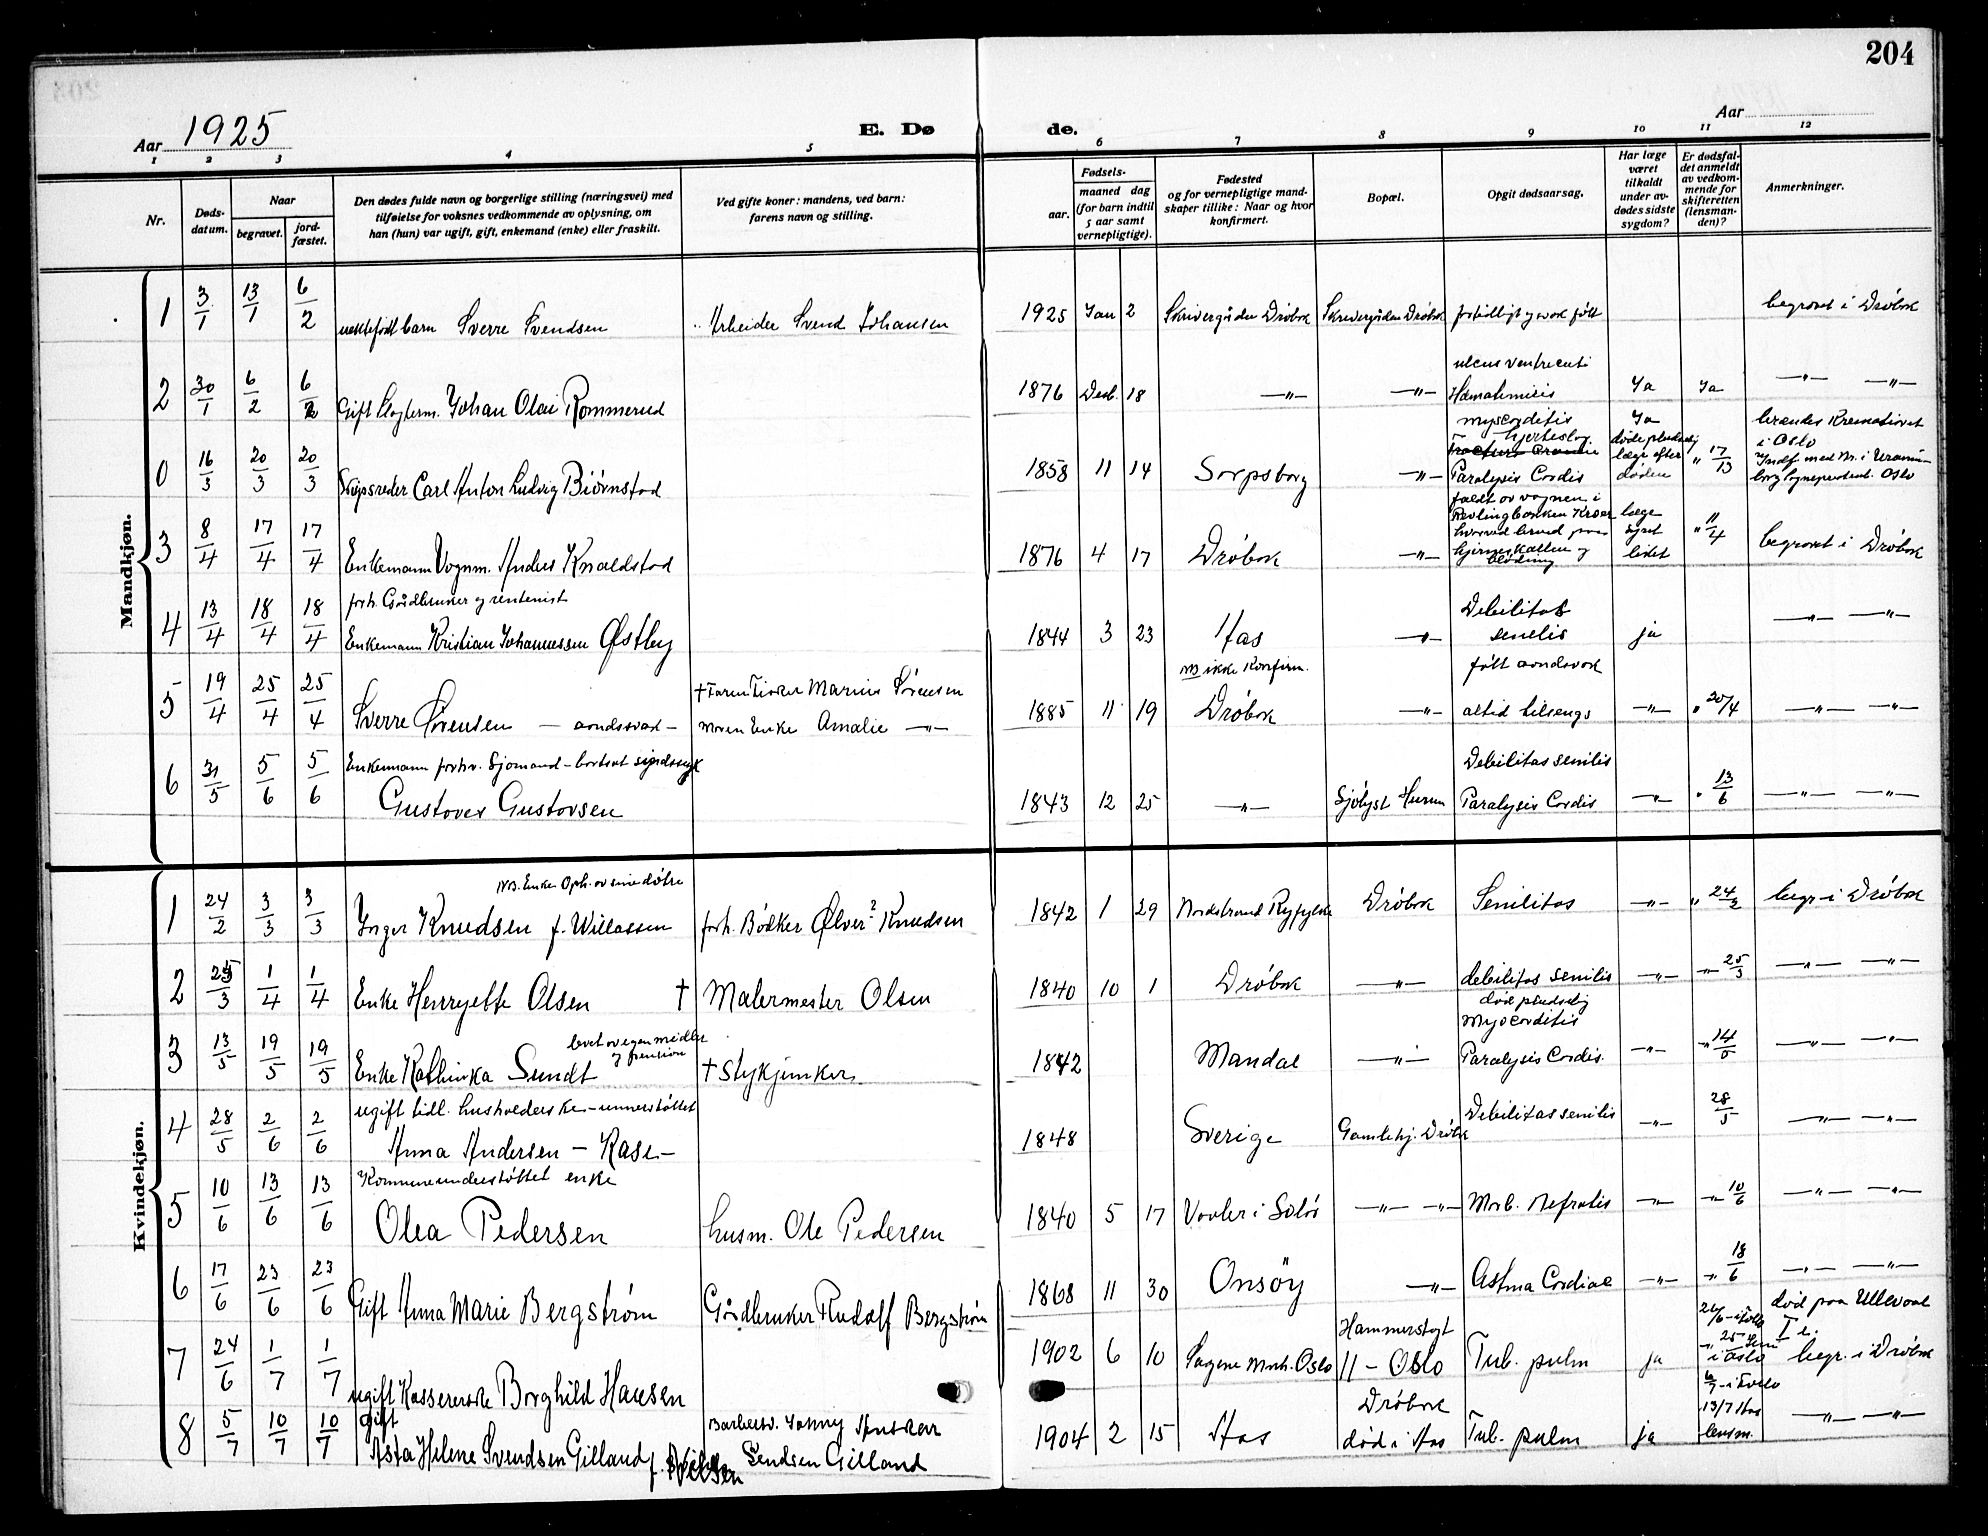 204
Aar 1925 E. Dø de. Aar
1 2 3 4 5 6 7 8 9 10 11 12
Nr. Døds-datum. Naar begravet. jord-fæstet. Den dødes fulde navn og borgerlige stilling (næringsvei) med tilføielse for voksnes vedkommende av oplysning, om han (hun) var ugift, gift, enkemand (enke) eller fraskilt. Ved gifte koner: mandens, ved barn: farens navn og stilling. Fødsels- aar. maaned dag (for barn indtil 5 aar samt vernepligtige). Fødested og for vernepligtige mand-skaper tillike: Naar og hvor konfirmert. Bopæl. Opgit dødsaarsag. Har læge været tilkaldt under av-dødes sidste sygdom? Er dødsfal-det anmeldt av vedkom-mende for skifteretten (lensman-den)? Anmerkninger.
Mandkjøn.
1 3/1 13/1 6/2 uektefødt barn Sverre Svendsen Arbeider Svend Johansen 1925 Jan 2 Skrivergården Drøbak Skrivergården Drøbak fortidligt svak født begravet i Drøbak
2 30/1 6/2 6/2 Gift Slagterm. Johan Olai Rommerud 1876 Desb. 18 —"— —"— ulcus ventreculi Hæmatemisis Ja Ja —"— —"—
0 16/3 20/3 20/3 Skipsreder Carl Anton Ludvig Biørnstad 1858 11 14 Sarpsborg —"— myocarditis hjerteslag Paralysis Cordis Ja døde pludselig læge efter døden " 17/3 brændes Krematoriet i Oslo
3 8/4 17/4 17/4 Enkemann Vognm. Anders Knaldstad 1876 4 17 Drøbak —"— faldt av vognen i hvorved brud paa hjerneskallen og blødning læge synet liket " 11/4 begravet i Drøbak
4 13/4 18/4 18/4 forh. Gårdbruker og rentenist
Enkemann Kristian Johannessen Østby 1844 3 23 Aas —"— Debilitas senilis ja —"— —"—
5 19/4 25/4 25/4 Sverre Sørensen — aandssvak — † Faren Fisker Marius Sørensen
moren Enke Amalie —"— 1885 11 19 NB ikke Konfirm. Drøbak —"— født aandsvak altid tilsengs —"— " 20/4 —"— —"—
6 31/5 5/6 5/6 Enkemann forhv. Sjømand – bortsat sindssyk
Gustaver Gustavsen 1843 12 25 —"— Sjølyst Hurum Debilitas senilis Paralysis Cordis —"— " 13/6 —"— —"—
Kvindekjøn.
1 24/2 3/3 3/3 NB. Enke Oph. av sine døtre
Inger Knudsen f. Willassen forh. Bødker Ølver? Knudsen 1842 1 29 Nordstrand Ryfylke Drøbak Senilitas —"— " 24/2 begr. i Drøbak
2 25/3 1/4 1/4 Enke Henryette Olsen † Malermester Olsen 1840 10 1 Drøbak —"— debilitas senilis —"— —"— 25/3 —"— —"—
3 13/5 19/5 19/5 levet av egen midler og pension
Enke Kathinka Sundt † Stykjunker 1842 Mandal —"— død pludselig Myocarditis Paralysis Cordis. —"— " 14/5 —"— —"—
4 28/5 2/6 2/6 ugift tidl. husholderske – understøttet
Anna Andersen – Kase – 1848 Sverige Gamlehj. Drøbak Debilitas senilis —"— 28/5 —"— —"—
5 10/6 13/6 13/6 Kommuneunderstøttet enke
Olea Pedersen husm. Ole Pedersen 1840 5 17 Vaaler i Solør —"— —"— Morb. Nefratis —"— —"— 10/6 —"— —"—
6 17/6 23/6 23/6 Gift Anna Marie Bergstrøm Gårdbruker Rudolf Bergstrøm 1868 11 30 Onsøy —"— Astma Cordiae —"— —"— 18/6 —"— —"—
7 24/6 1/7 1/7 ugift Kassererske Borghild Hansen 1902 6 10 Sagene Menh. Oslo Hammerstgt 11 – Oslo Tub. pulm ja 26/6 25 Juni i Oslo død paa Ullevaal begr. i Drøbak
8 5/7 10/7 10/7 gift
Asta Helene Svendsen Gilland f. Nilsen Barbersv. Johny Anskar Sendsen Gilland 1904 2 15 Aas Drøbak død i Aas Tub. pulm ja 13/7 Aas lensm. —"— —"—